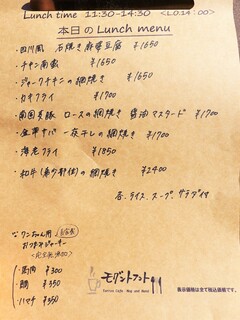 Lunch time 11:30-14:30 <LO.14:00>
本日のLunch menu
・四川風 石焼き麻婆豆腐 ¥1650
・チキン南蛮 ¥1650
・ジャークチキンの網焼き ¥1650
・カキフライ ¥1700
・南国美豚 ロースの網焼き 醤油マスタード ¥1700
・金華サバ 一夜干しの網焼き ¥1700
・海老フライ ¥1850
・和牛の網焼き ¥2400
各、ライス、スープ、サラダ付
ワンちゃん用
おつまみジャーキー
・鹿肉 ¥300
・鶏 ¥350
・ハマチ ¥350
モダントフント
表示価格は全て税込価格です。